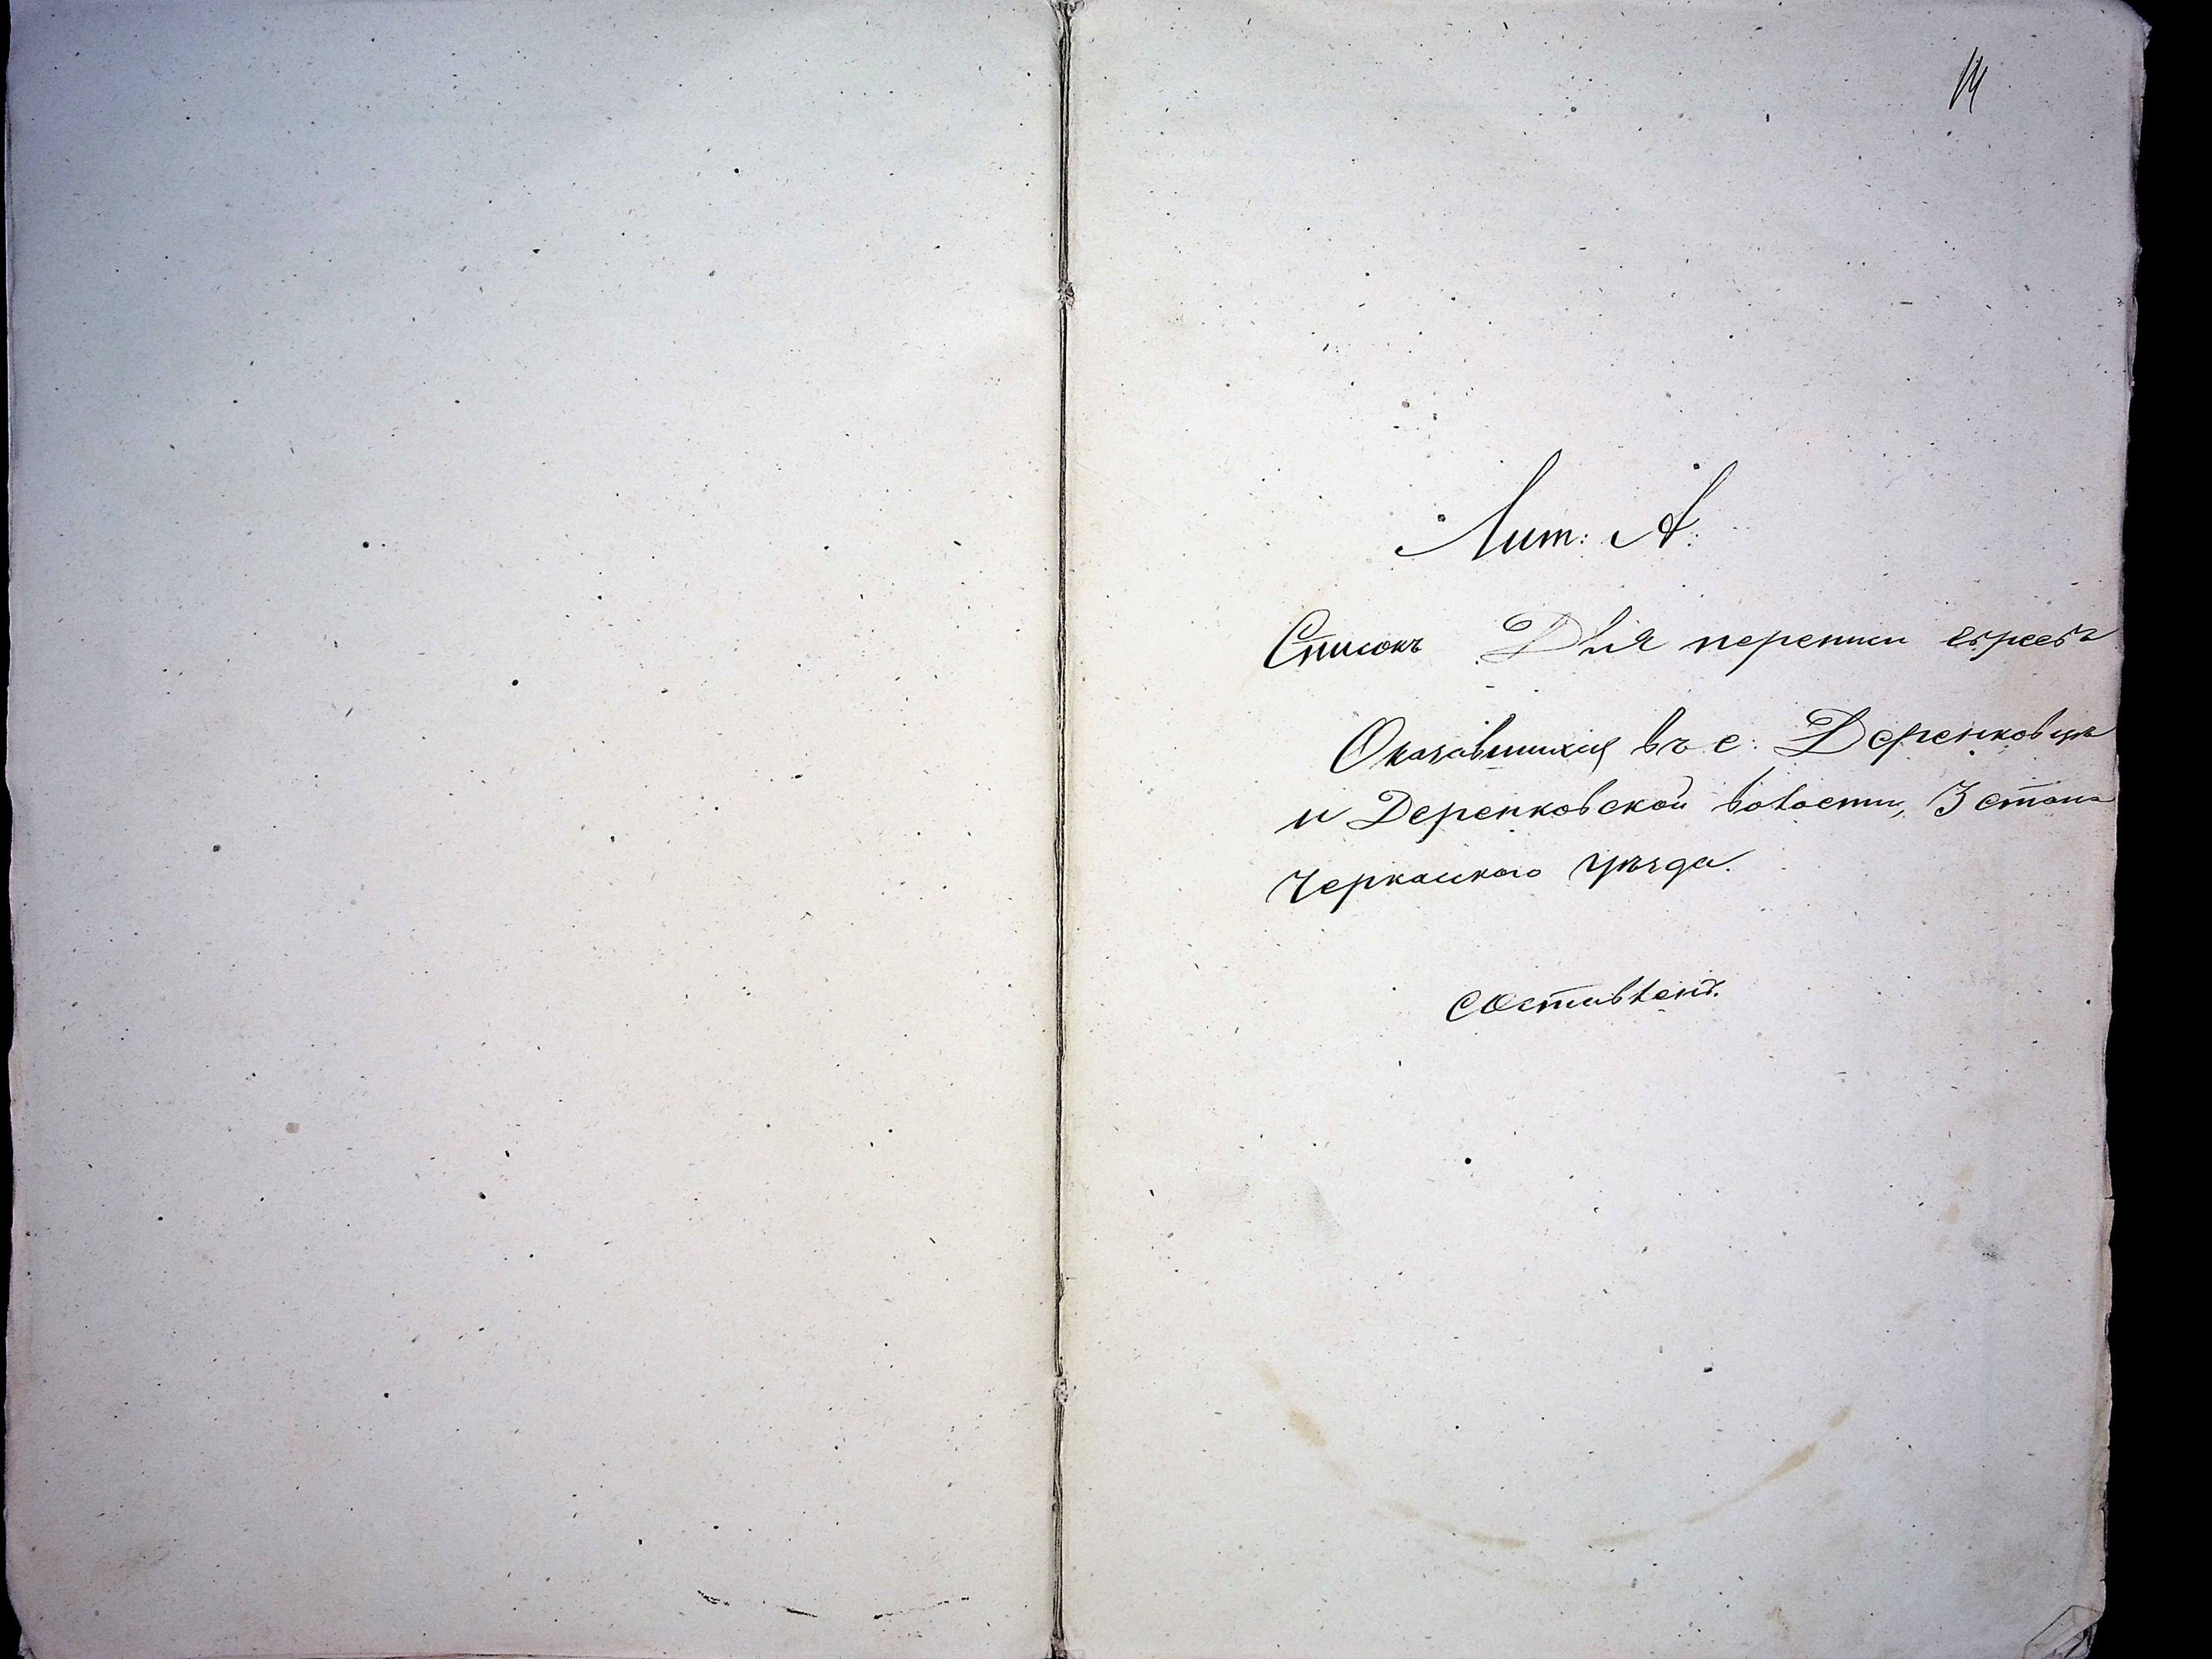 14
Лит: А:
Списокъ Для переписи евреевъ
Оказавшихся въ с: Деренковцѣ
и Деренковской волости, 3 стана
Черкаскаго уѣзда.
составленъ.